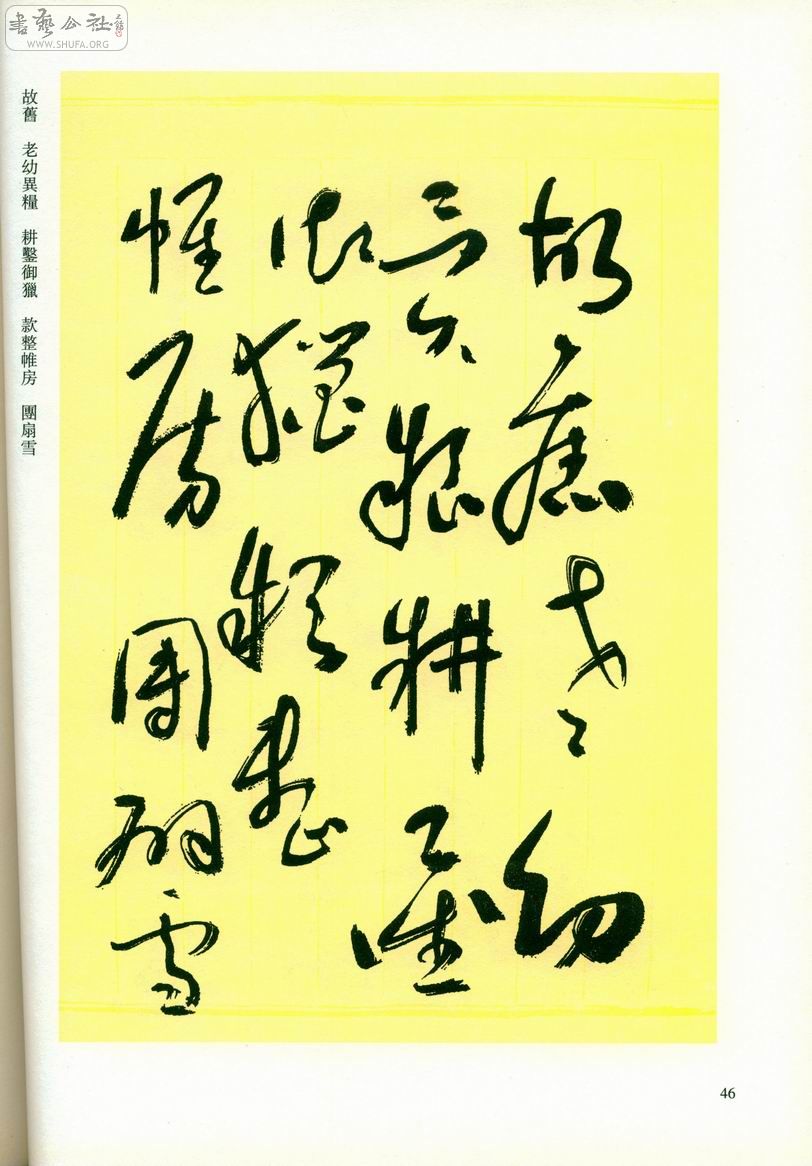 書藝公社
WWW.SHUFA.ORG
故舊老幼
異糧耕鑿
御獵款整
帷房團扇雪
故舊 老幼異糧 耕鑿御獵 款整帷房 團扇雪
46